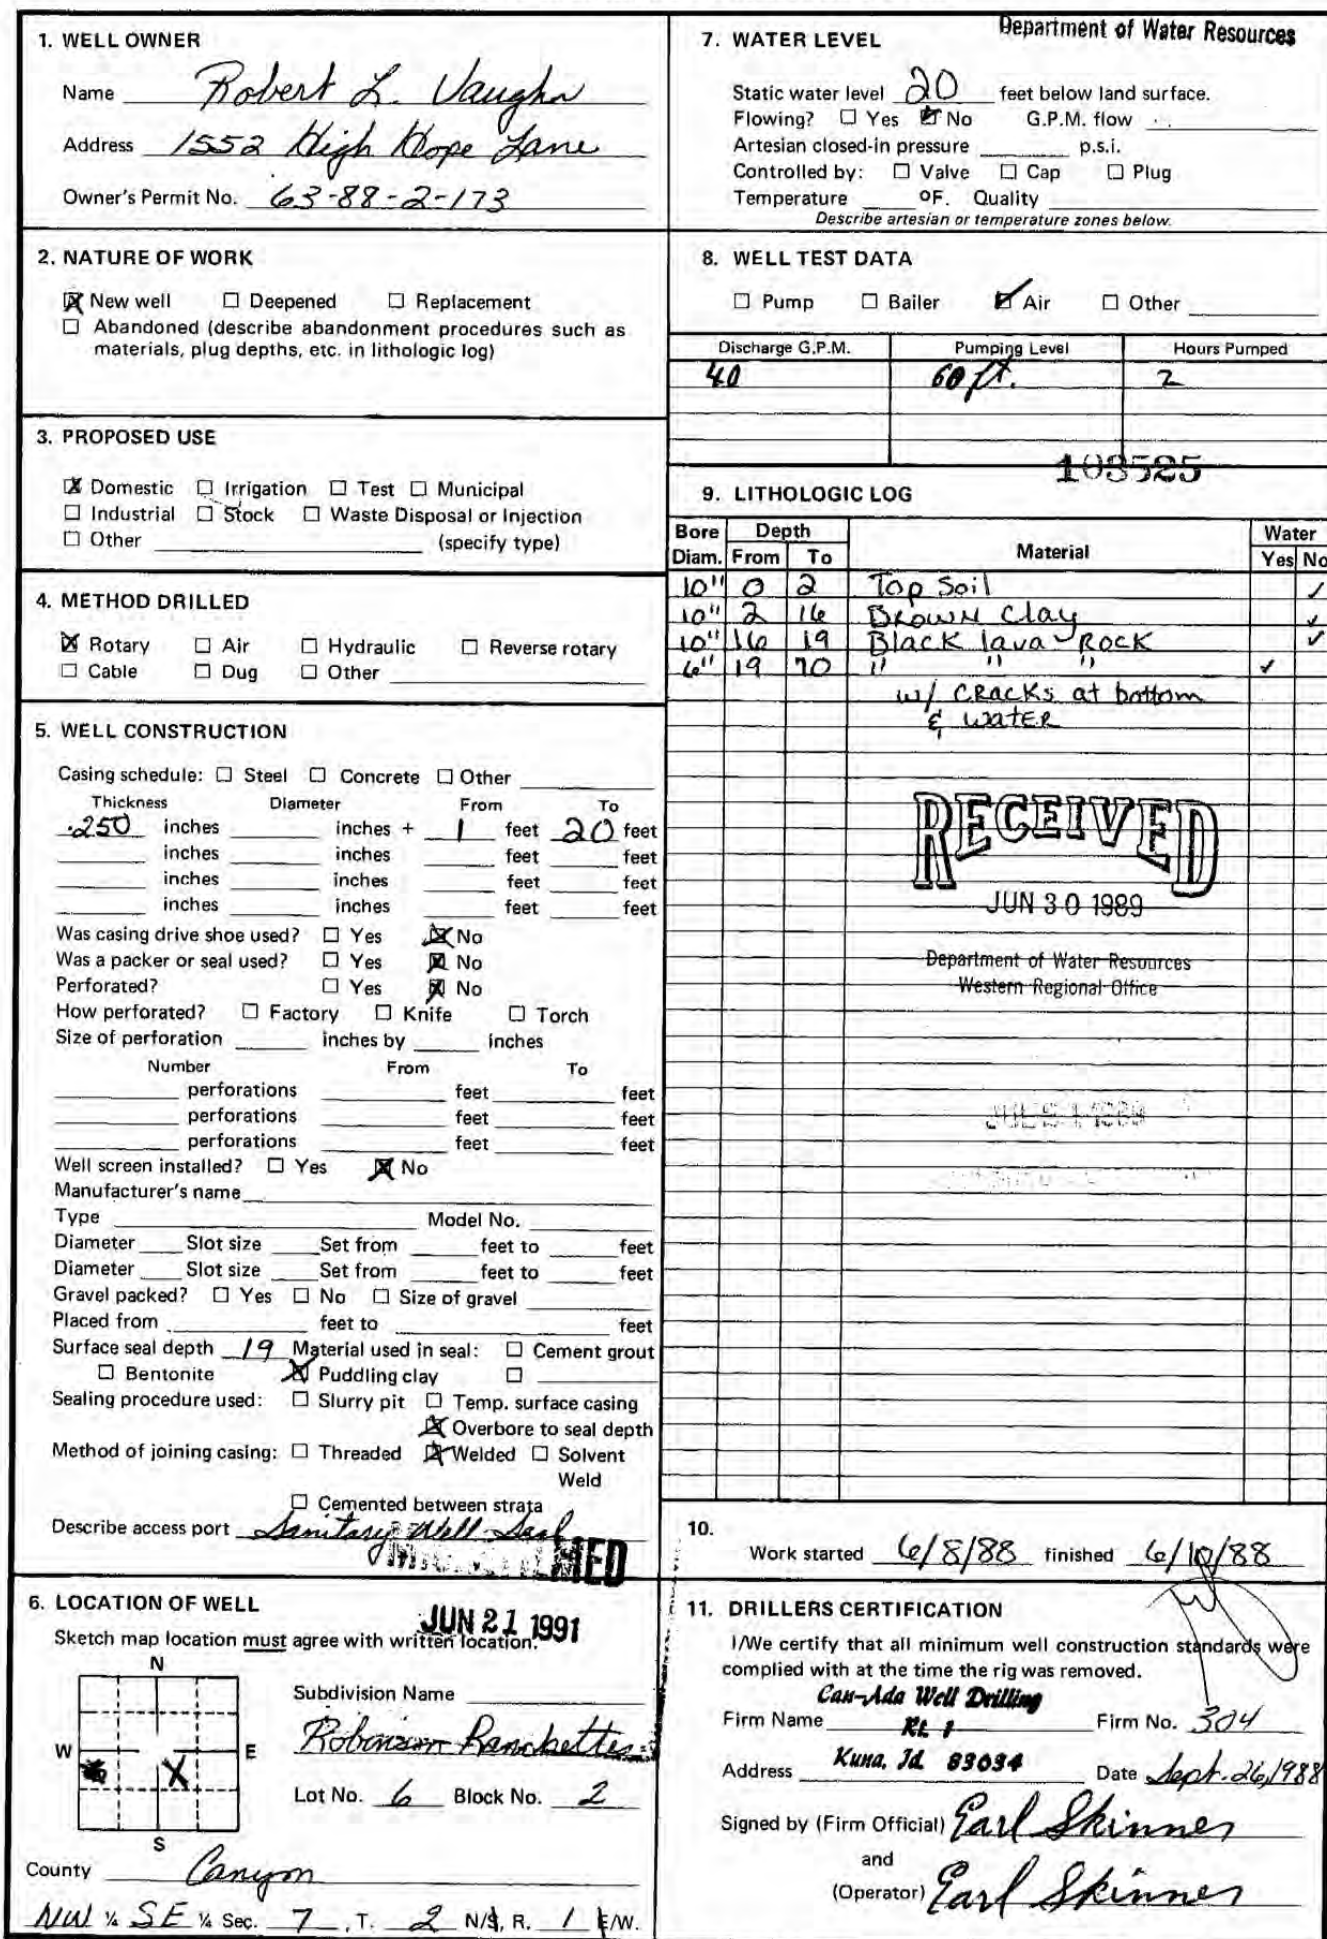 Department of Water Resources
1. WELL OWNER
Name Robert L. Vaughn
Address 1552 High Hope Lane
Owner's Permit No. 63-88-2-173
2. NATURE OF WORK
New well Deepened Replacement
Abandoned (describe abandonment procedures such as
materials, plug depths, etc. in lithologic log)
3. PROPOSED USE
Domestic Irrigation Test Municipal
Industrial Stock Waste Disposal or Injection
Other (specify type)
4. METHOD DRILLED
Rotary Air Hydraulic Reverse rotary
Cable Dug Other
5. WELL CONSTRUCTION
Casing schedule: Steel Concrete Other
Thickness Diameter From To
.250 inches inches + 1 feet 20 feet
inches inches feet feet
inches inches feet feet
inches inches feet feet
Was casing drive shoe used? Yes No
Was a packer or seal used? Yes No
Perforated? Yes No
How perforated? Factory Knife Torch
Size of perforation inches by inches
Number From To
perforations feet feet
perforations feet feet
perforations feet feet
Well screen installed? Yes No
Manufacturer's name
Type Model No.
Diameter Slot size Set from feet to feet
Diameter Slot size Set from feet to feet
Gravel packed? Yes No Size of gravel
Placed from feet to feet
Surface seal depth 19 Material used in seal: Cement grout
Bentonite Puddling clay
Sealing procedure used: Slurry pit Temp. surface casing
Overbore to seal depth
Method of joining casing: Threaded Welded Solvent
Weld
Cemented between strata
Describe access port Sanitary Well Seal
6. LOCATION OF WELL
JUN 21 1991
Sketch map location must agree with written location.
N
W E
S
Subdivision Name
Robinson Ranchettes
Lot No. 6 Block No. 2
County Canyon
NW ¼ SE ¼ Sec. 7, T. 2 N/S, R. 1 E/W.
7. WATER LEVEL
Static water level 20 feet below land surface.
Flowing? Yes No G.P.M. flow
Artesian closed-in pressure p.s.i.
Controlled by: Valve Cap Plug
Temperature OF. Quality
Describe artesian or temperature zones below.
8. WELL TEST DATA
Pump Bailer Air Other
Discharge G.P.M. Pumping Level Hours Pumped
40 60 ft. 2
103525
9. LITHOLOGIC LOG
Bore Depth Water
Diam. From To Material Yes No
10" 0 2 Top Soil ✓
10" 2 16 Brown Clay ✓
10" 16 19 Black lava Rock ✓
6" 19 70 " " " ✓
w/ CRACKS at bottom
& WATER
RECEIVED
JUN 30 1989
Department of Water Resources
Western Regional Office
10.
Work started 6/8/88 finished 6/10/88
11. DRILLERS CERTIFICATION
I/We certify that all minimum well construction standards were
complied with at the time the rig was removed.
Can-Ada Well Drilling
Firm Name Rt. 1 Firm No. 304
Address Kuna, Id. 83034 Date Sept. 26, 1988
Signed by (Firm Official) Earl Skinner
and
(Operator) Earl Skinner